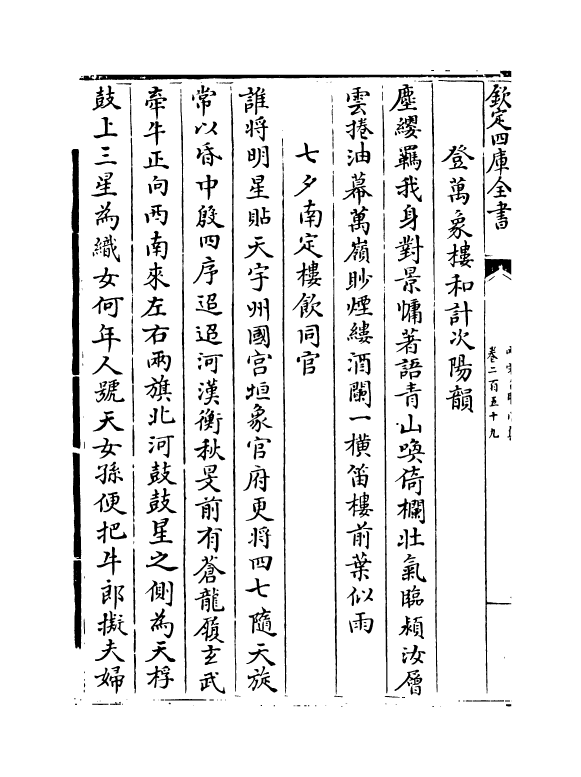 欽定四庫全書
卷二百五十九
登萬象樓和計次陽韻
塵纓羈我身對景慵著語青山喚倚欄壯氣臨潁汝層
雲捲油幕萬嶺眇煙縷酒闌一橫笛樓前葉似雨
七夕南定樓飲同官
誰將明星貼天宇州國宫垣象官府更將四七隨天旋
常以昏中殷四序迢迢河漢衡秋旻前有蒼龍殿玄武
牽牛正向西南來左右兩旗北河鼓鼓星之側為天桴
鼓上三星為織女何年人號天女孫便把牛郎擬夫婦